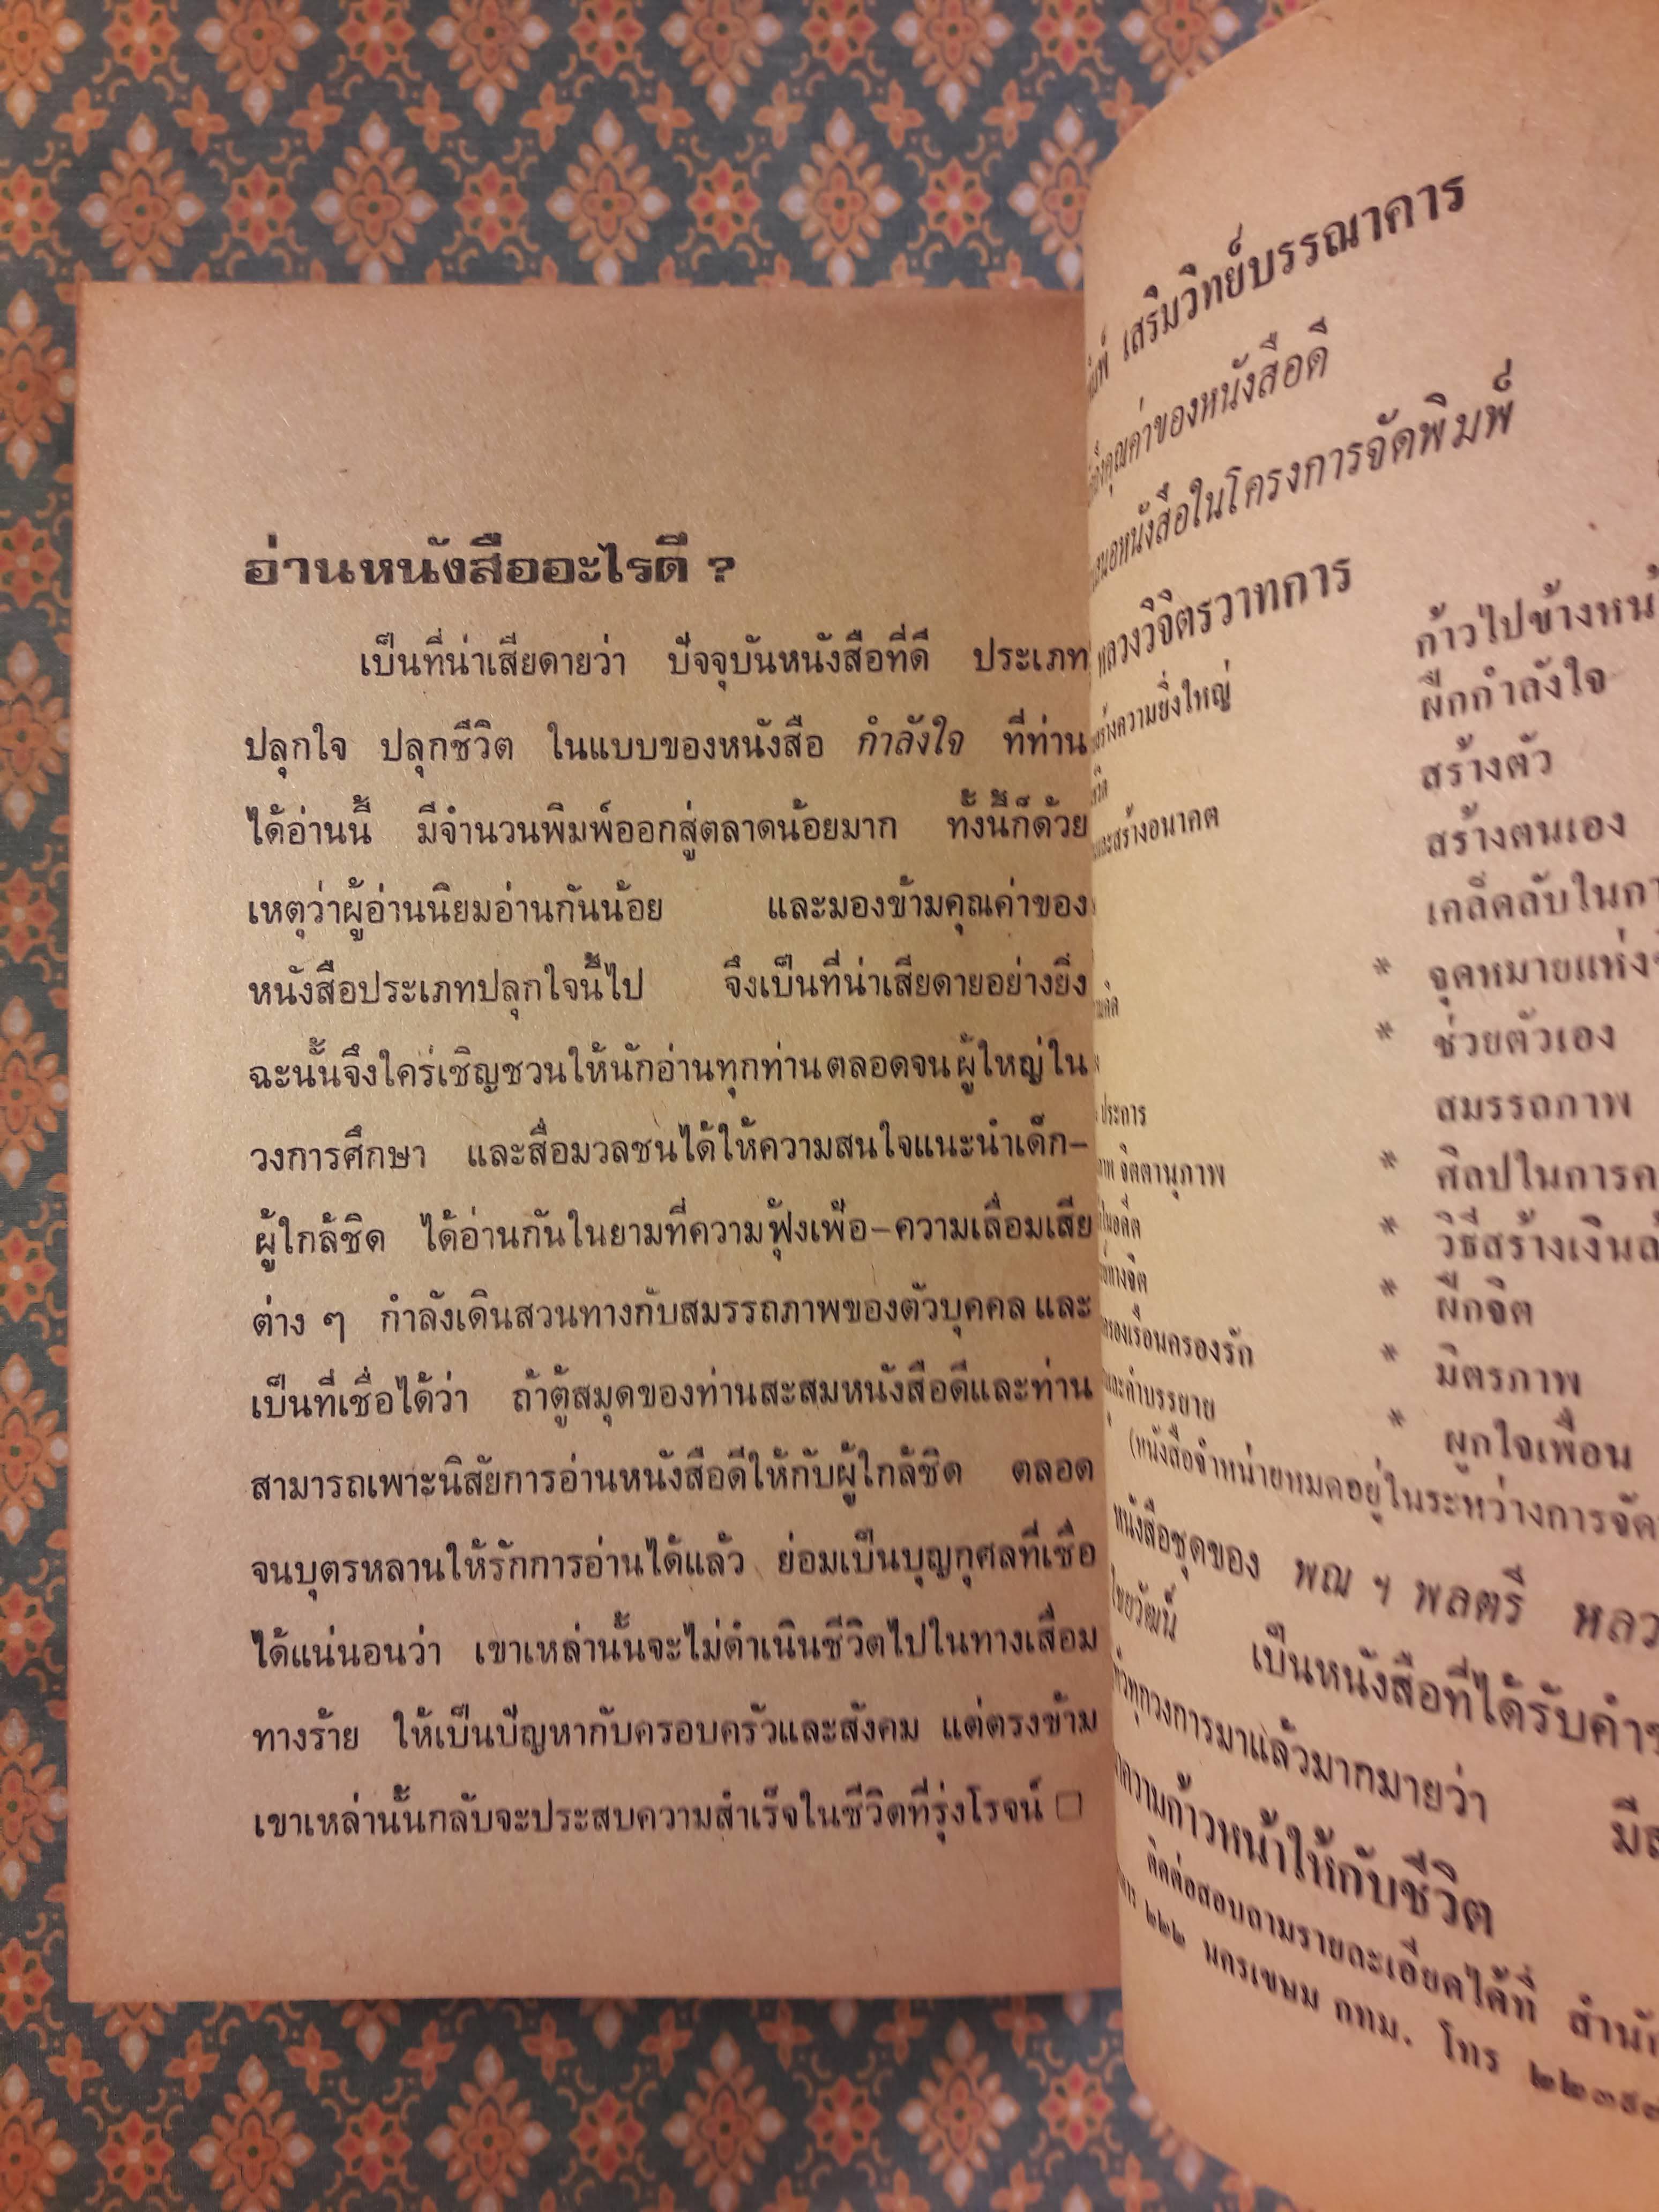 อ่านหนังสืออะไรดี ?
เป็นที่น่าเสียดายว่า ปัจจุบันหนังสือที่ดี ประเภท
ปลุกใจ ปลุกชีวิต ในแบบของหนังสือ กำลังใจ ที่ท่าน
ได้อ่านนี้ มีจำนวนพิมพ์ออกสู่ตลาดน้อยมาก ทั้งนี้ก็ด้วย
เหตุว่าผู้อ่านนิยมอ่านกันน้อย และมองข้ามคุณค่าของ
หนังสือประเภทปลุกใจนี้ไป จึงเป็นที่น่าเสียดายอย่างยิ่ง
ฉะนั้นจึงใคร่เชิญชวนให้นักอ่านทุกท่าน ตลอดจนผู้ใหญ่ใน
วงการศึกษา และสื่อมวลชนได้ให้ความสนใจแนะนำเด็ก-
ผู้ใกล้ชิด ได้อ่านกันในยามที่ความฟุ้งเฟ้อ-ความเสื่อมเสีย
ต่าง ๆ กำลังเดินสวนทางกับสมรรถภาพของตัวบุคคล และ
เป็นที่เชื่อได้ว่า ถ้าตู้สมุดของท่านสะสมหนังสือดีและท่าน
สามารถเพาะนิสัยการอ่านหนังสือดีให้กับผู้ใกล้ชิด ตลอด
จนบุตรหลานให้รักการอ่านได้แล้ว ย่อมเป็นบุญกุศลที่เชื่อ
ได้แน่นอนว่า เขาเหล่านั้นจะไม่ดำเนินชีวิตไปในทางเสื่อม
ทางร้าย ให้เป็นปัญหากับครอบครัวและสังคม แต่ตรงข้าม
เขาเหล่านั้นกลับจะประสบความสำเร็จในชีวิตที่รุ่งโรจน์ □
เสริมวิทย์บรรณาคาร
คุณค่าของหนังสือดี
หนังสือในโครงการจัดพิมพ์
หลวงวิจิตรวาทการ
ความยิ่งใหญ่
และสร้างอนาคต
ประการ
จิตตานุภาพ
ในอดีต
ทางจิต
ครองเรือนครองรัก
และคำบรรยาย
ก้าวไปข้างหน้า
ฝึกกำลังใจ
สร้างตัว
สร้างตนเอง
เคล็ดลับใน
* จุดหมายแห่ง
* ช่วยตัวเอง
สมรรถภาพ
* ศิลปในการ
* วิธีสร้างเงิน
* ฝึกจิต
* มิตรภาพ
* ผูกใจเพื่อน
(หนังสือจำหน่ายหมดอยู่ในระหว่างการจัด
หนังสือชุดของ พณ ฯ พลตรี
ไชยวัฒน์ เป็นหนังสือที่ได้รับ
ทั่วทุกวงการมาแล้วมากมายว่า
ความก้าวหน้าให้กับชีวิต
ติดต่อสอบถามรายละเอียดได้ที่
๒๒๒ นครเขษม กทม. โทร